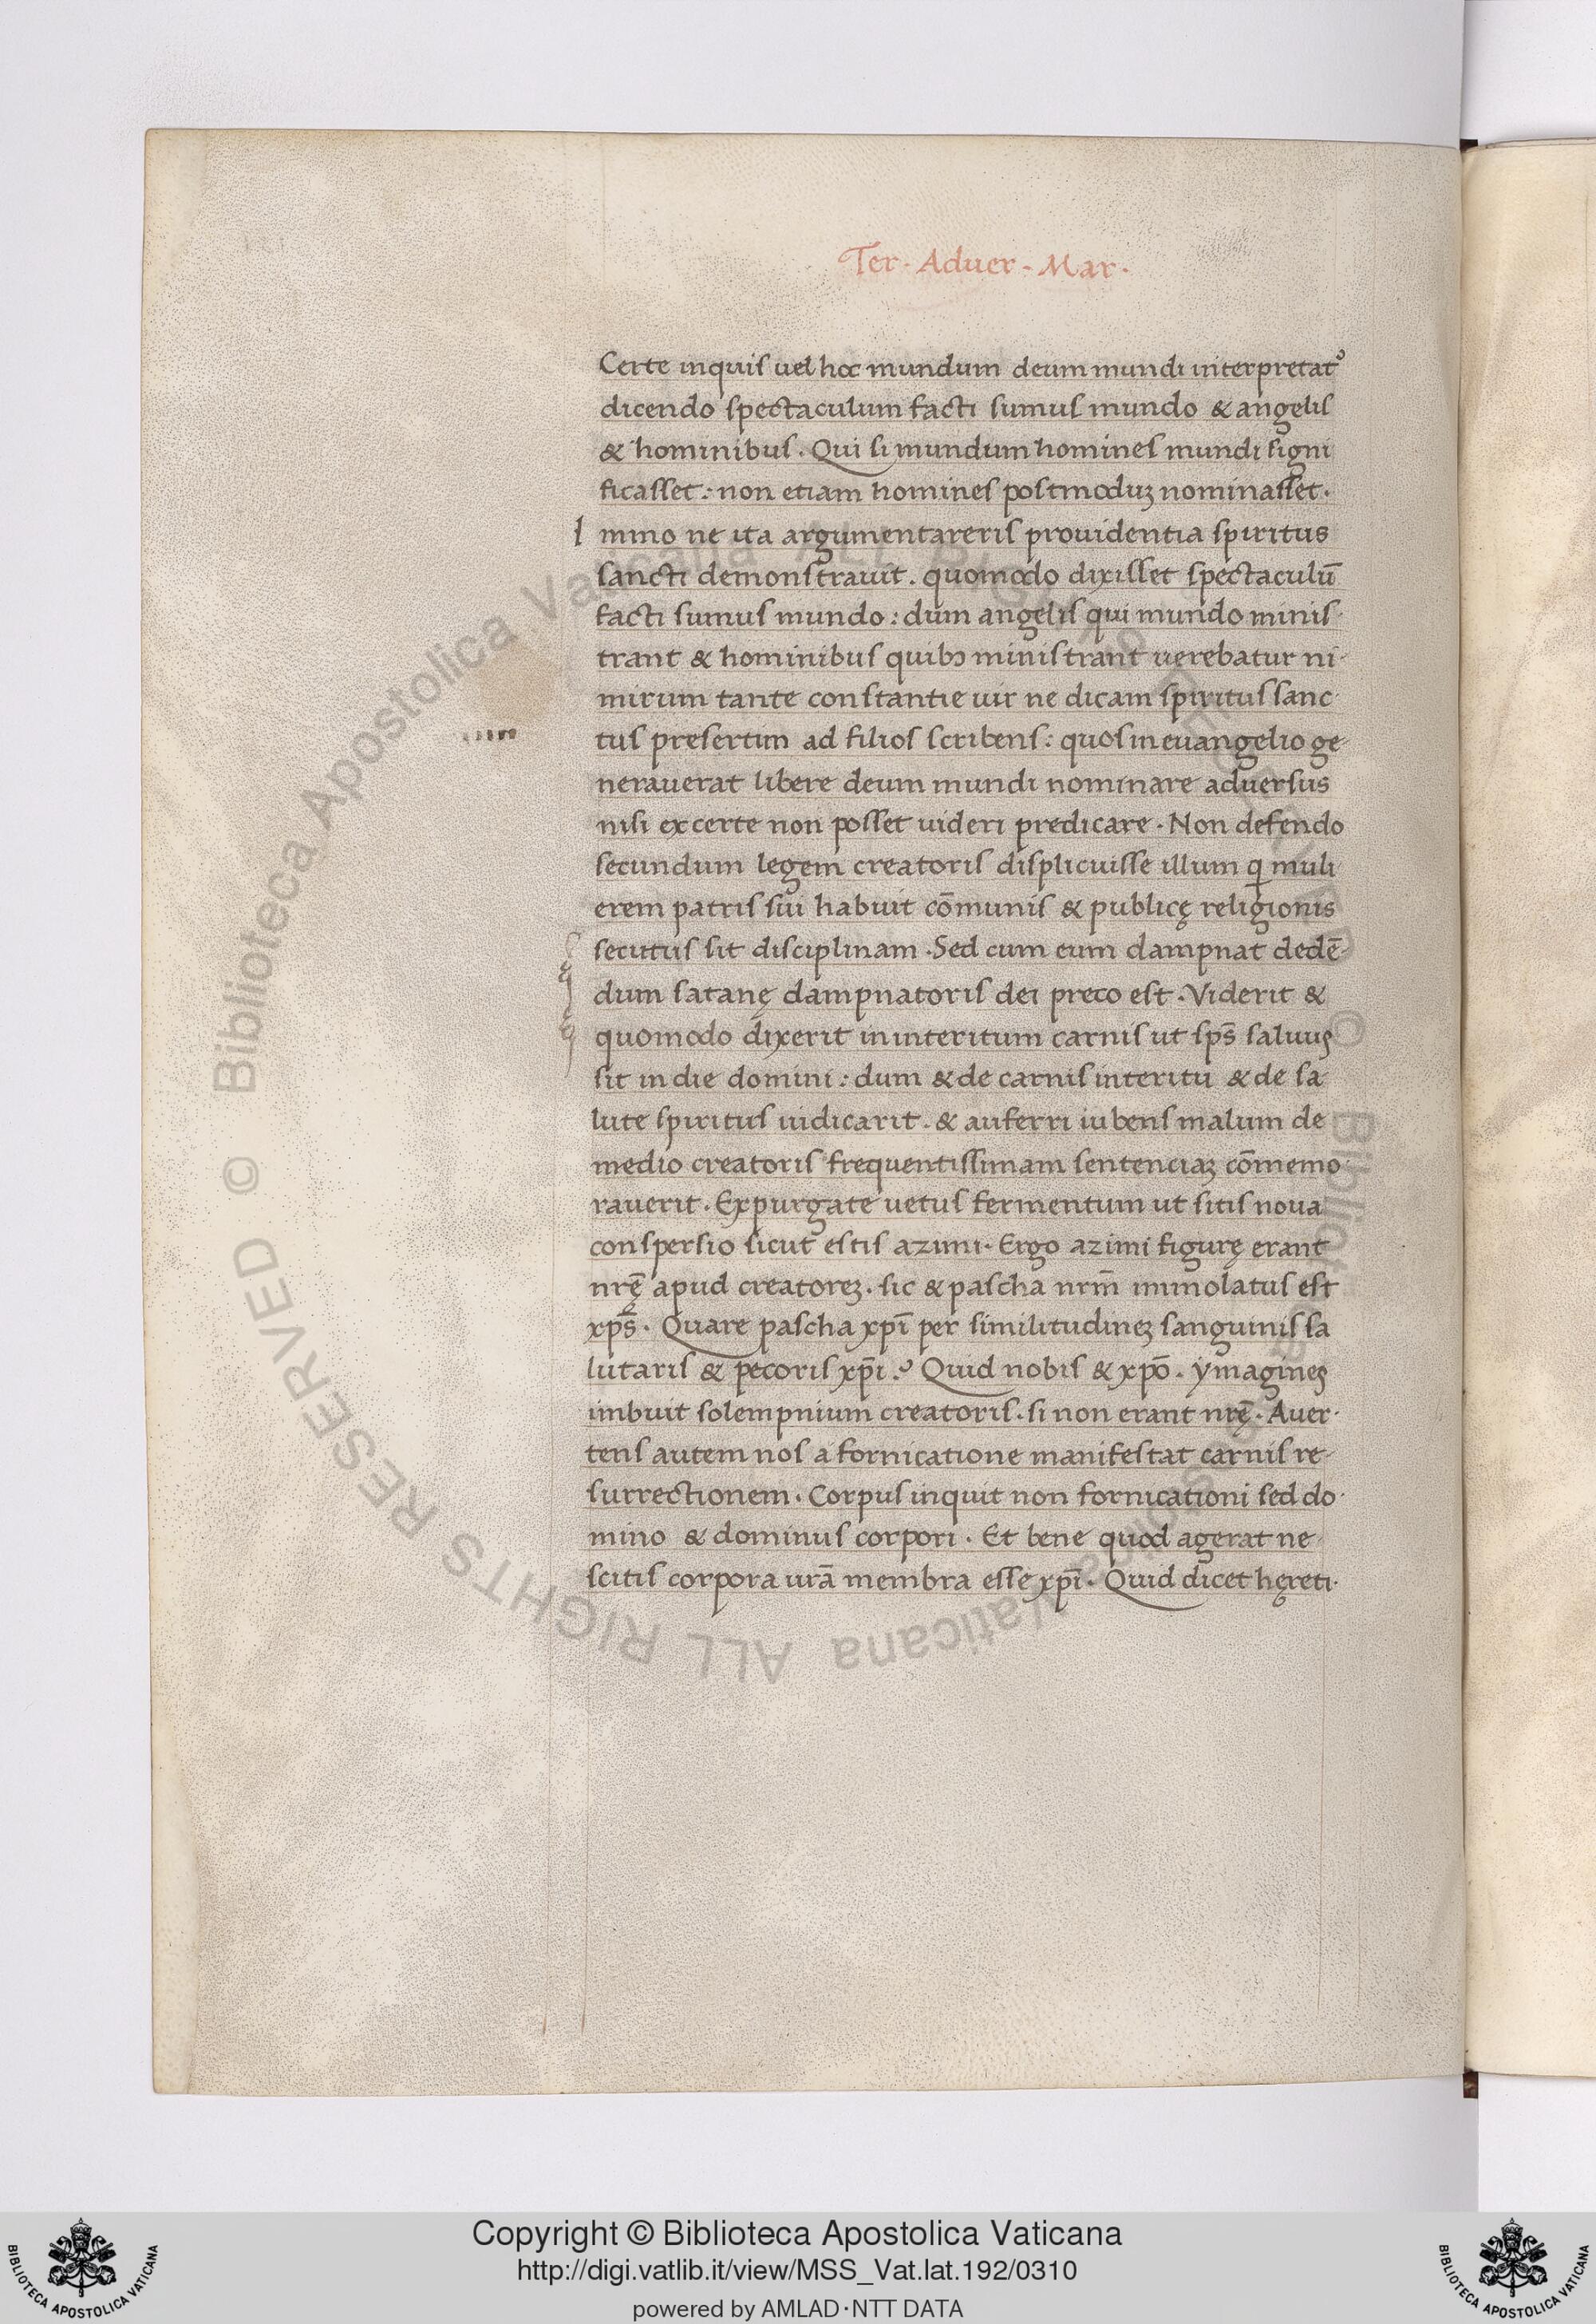 Ter · Aduer · Mar ·
Certe inquis uel hoc mundum deum mundi interpretatꝰ
dicendo spectaculum facti sumus mundo & angelis
& hominibus · Qui si mundum homines mundi signi
ficasset : non etiam homines postmoduꝫ nominasset ·
I mmo ne ita argumentareris prouidentia spiritus
sancti demonstrauit . quomodo dixisset spectaculū
facti sumus mundo : dum angelis qui mundo minis
trant & hominibus quibꝫ ministrant uerebatur ni-
mirum tante constantie uir ne dicam spiritus sanc-
tus presertim ad filios scribens : quos in euangelio ge-
nerauerat libere deum mundi nominare aduersus
nisi ex certe non posset uideri predicare · Non defendo
secundum legem creatoris displicuisse illum q̄ muli
erem patris sui habuit cōmunis & publicę religionis
secutus sit disciplinam · Sed cum eum dampnat dedē-
dum satanę dampnatoris dei preco est · Viderit &
quomodo dixerit in interitum carnis ut sp̄s saluus
sit in die domini : dum & de carnis interitu & de sa
lute spiritus iudicarit . & auferri iubens malum de
medio creatoris frequentissimam sentenciaꝫ cōmemo-
rauerit · Expurgate uetus fermentum ut sitis noua
conspersio sicut estis azimi · Ergo azimi figurę erant
nrę̄ apud creatoreꝫ . sic & pascha nrm̄ immolatus est
xp̄s · Quare pascha xp̄i per similitudineꝫ sanguinis sa
lutaris & pecoris xp̄i ? Quid nobis & xp̄o · ymagines
imbuit solempnium creatoris . si non erant nrę̄ · Auer-
tens autem nos a fornicatione manifestat carnis re-
surrectionem · Corpus inquit non fornicationi sed do-
mino & dominus corpori · Et bene quod agerat ne-
scitis corpora urā membra esse xp̄i · Quid dicet hęreti-
© Biblioteca Apostolica Vaticana ALL RIGHTS RESERVED © Biblioteca Apostolica Vaticana ALL RIGHTS RESERVED
Copyright © Biblioteca Apostolica Vaticana
http://digi.vatlib.it/view/MSS_Vat.lat.192/0310
powered by AMLAD·NTT DATA
BIBLIOTECA APOSTOLICA VATICANA
BIBLIOTECA APOSTOLICA VATICANA